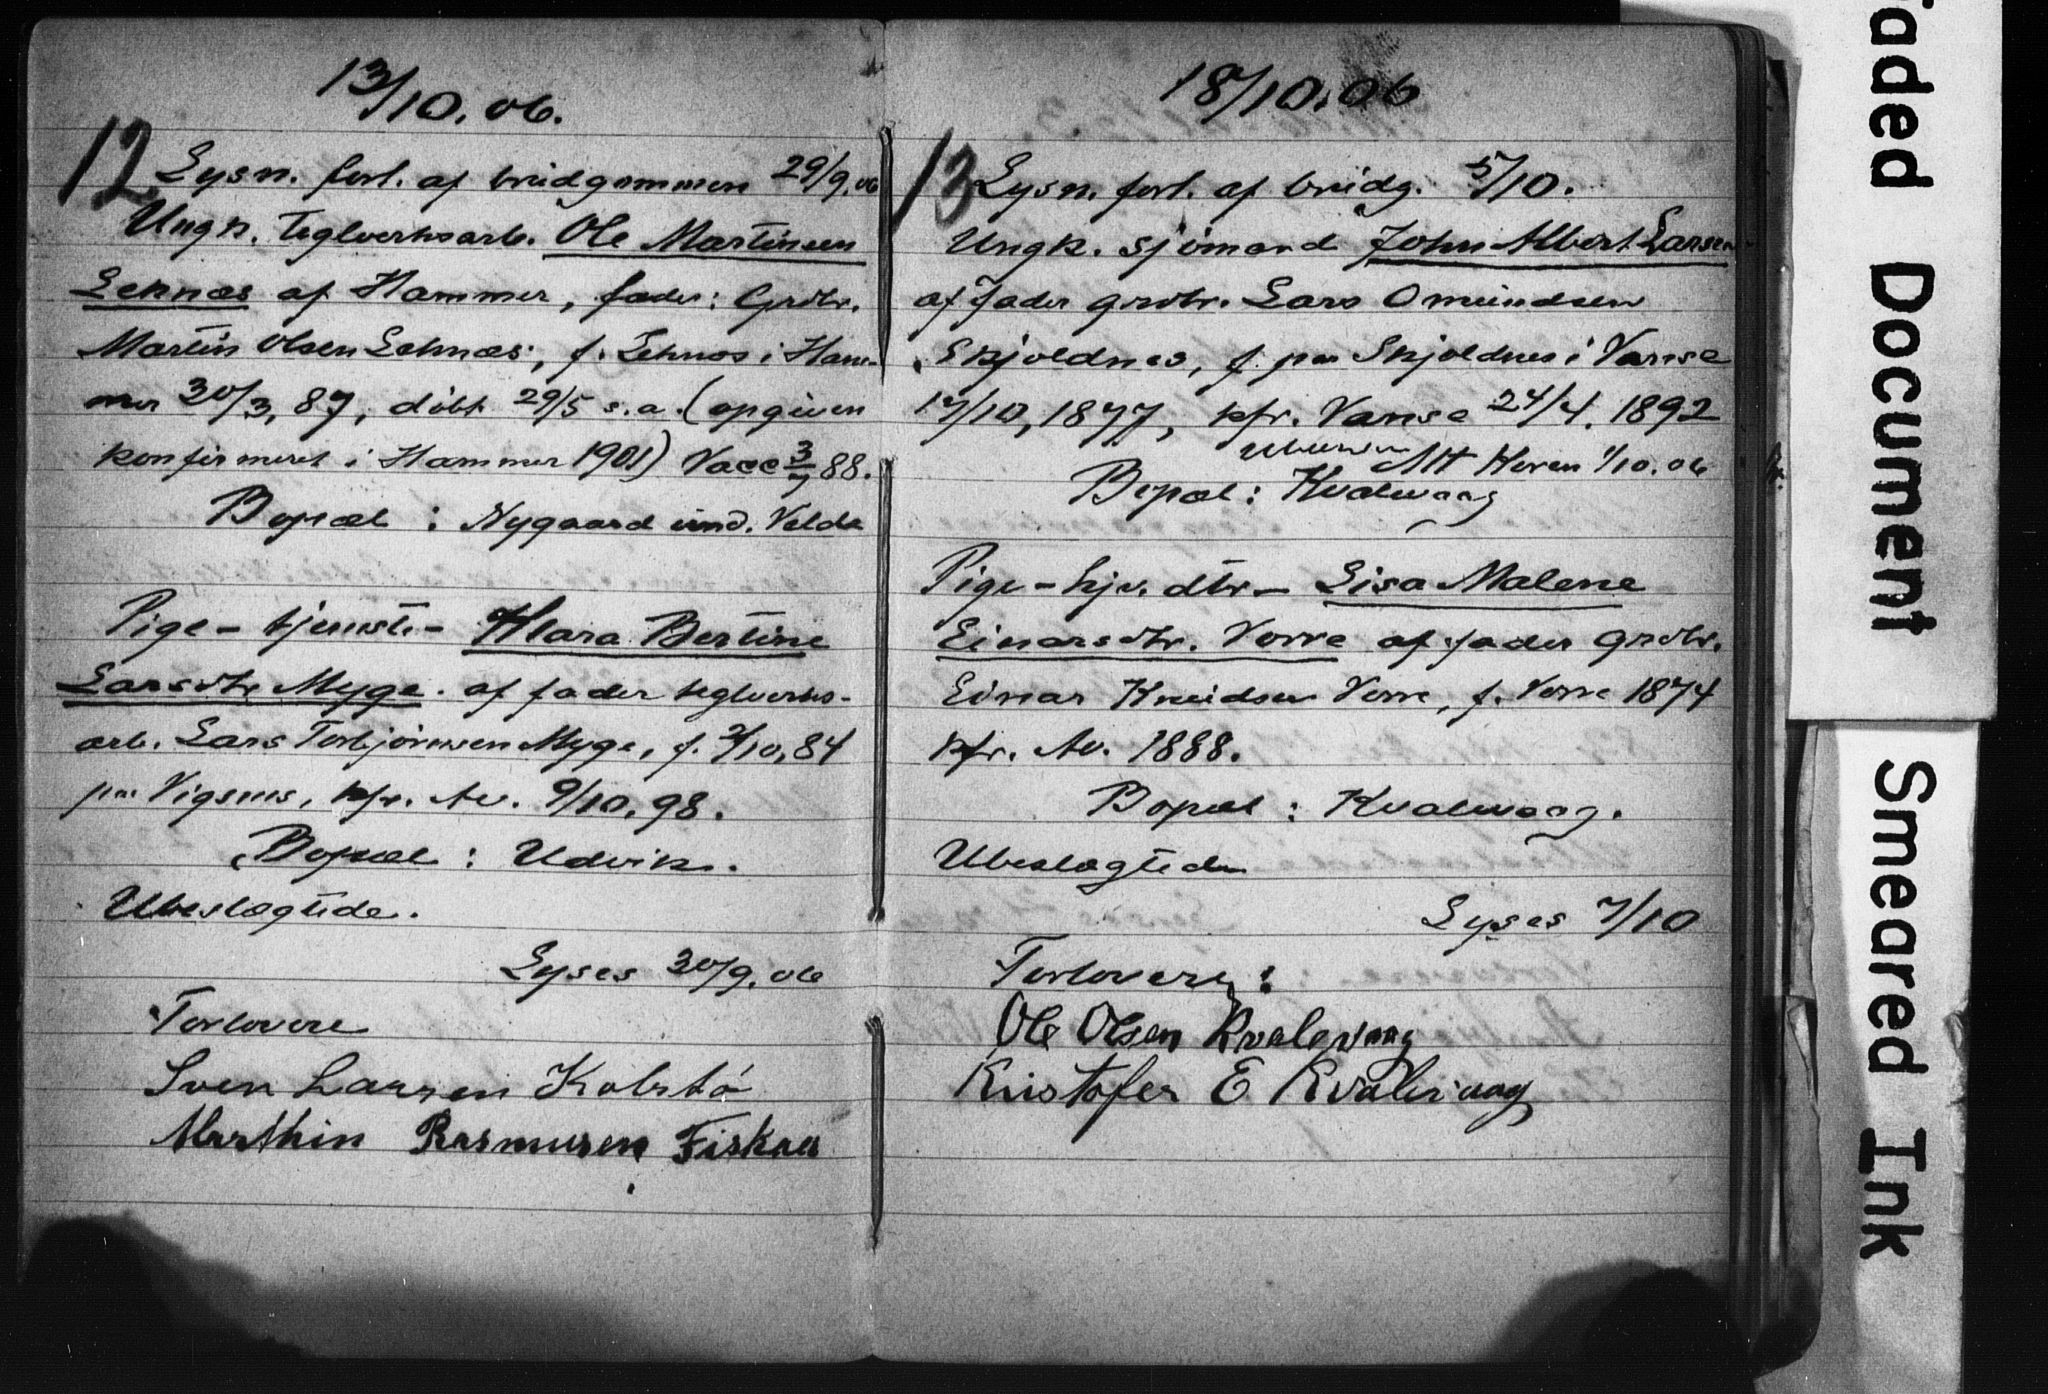 13/10.06.
12 Lysn. forl. af brudgommen 29/9.06
Ungk. teglverksarb. Ole Martinsen
Leknæs af Hammer, fader: Grdbr.
Martin Olsen Leknæs, f. Leknæs i Ham-
mer 30/3, 87, döbt 29/5 s.a. (opgiven
konfirmeret i Hammer 1901) Vacc 3/7 88.
Bopæl : Nygaard und. Velde
Pige – tjenste – Klara Bertine
Larsdtr Myge. af fader teglverks-
arb. Lars Torbjörnsen Myge, f. 2/10, 84
paa Vigsnes, kfr. Av. 9/10.98.
Bopæl : Udvik.
Ubeslægtede.
Lyses 30/9.06
Forlovere
Sven Larsen Kolstö
Marthin Rasmusen Fiskaa
18/10.06
13 Lysn. forl. af brudg. 5/10.
Ungk. sjömand John Albert Larsen
af fader grdbr. Lars Omundsen
Skjoldnes, f. paa Skjoldnes i Vanse
17/10, 1877, kfr. Vanse 24/4. 1892
Att Haren 1/10.06
Bopæl : Kvalevaag
Pige – hjv. dtr – Lisa Malene
Einarsdtr. Vorre af fader grdbr.
Einar Knudsen Vorre, f. Vorre 1874
kfr. Av. 1888.
Bopæl : Kvalevaag.
Ubeslægtede
Lyses 7/10
Forlovere :
Ole Olsen Kvalevaag
Kristofer E Kvalevaag
Faded Document
Smeared Ink